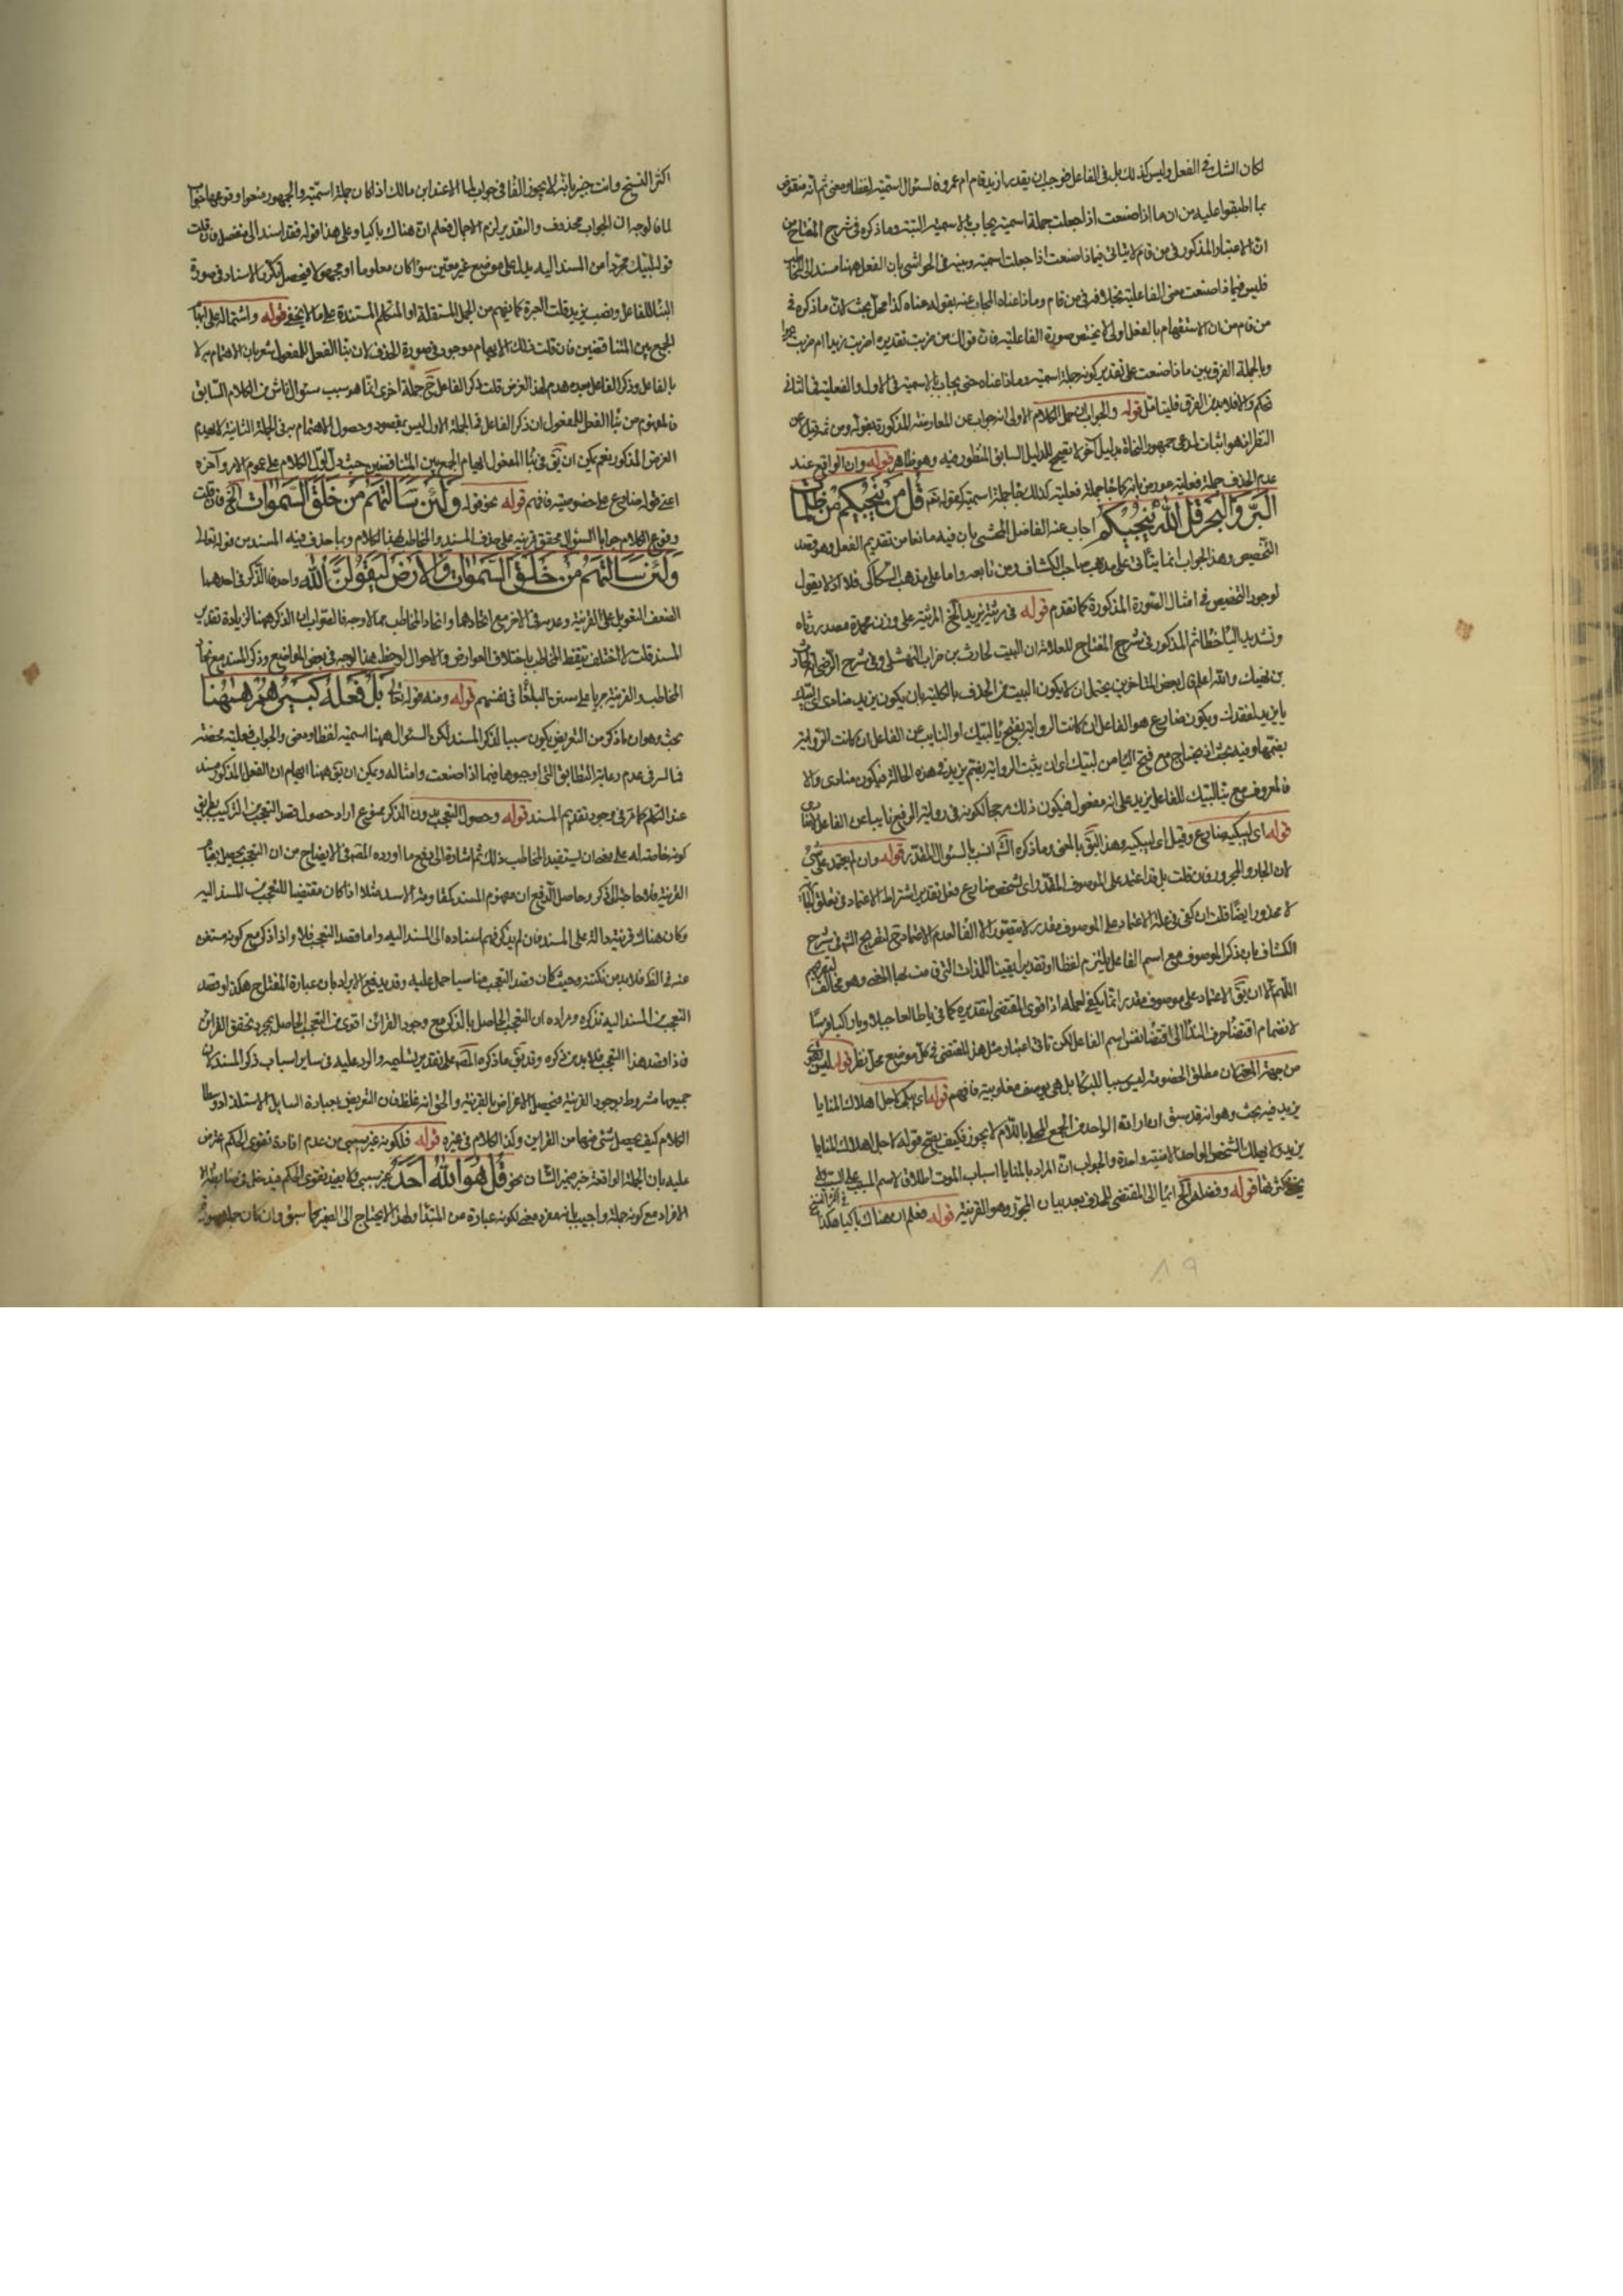 لكان الشك في الفعل وليس كذلك بل في الفاعل فوجب ان يقدر ازيد قام ام عمرو فالسئوال اسمية لفظا ومعنى ثم انه منقوض
بما اطبقوا عليه من ان ماذا صنعت اذا جعلت جملة اسمية يجاب بالاسمية البتة وما ذكره في شرح المفتاح من
ان الاعتبار المذكور في من قام لا يتاتى فيماذا صنعت اذا جعلت اسمية وبينه في الحواشي بان الفعل ههنا مسند الى المخاطب
فليس فيما ذا صنعت معنى الفاعلية بخلافه في من قام وماذا عناه المجاب عنه بقوله عناه كذا محل بحث لان ما ذكره في
من قام من ان الاستفهام بالفعل اولى لا يختص صورة الفاعلية فان قولك من ضربت تقديره اضربت زيدا ام ضربت عمرا
وبالجملة الفرق بين ماذا صنعت على تقدير كونه جملة اسمية وماذا عناه حتى يجاب بالاسمية في الاول والفعلية في الثاني
تحكم والا فلا بد من الفرق فليتامل قوله والجواب ان حمل الكلام الاولى انه جواب عن المعارضة المذكورة بقوله ومن ثم قيل عن
النظر انه هو اثبات لمدعى جمهور النحاة بدليل آخر لا تصحيح للدليل السابق المنظور فيه وهو ظاهر قوله وان الواقع عند
عدم الحذف جملة فعلية عورض بانه كما جاء جملة فعلية كذلك جاء جملة اسمية كقوله تعـ قل من ينجيكم من ظلمات
البر والبحر قل الله ينجيكم اجاب عنه الفاضل المحشي بان فيه مانعا من تقديم الفعل وهو قصد
التخصيص وهذا الجواب انما يتاتى على مذهب صاحب الكشاف ومن تابعه واما على مذهب السكاكي فلا اذ لا يقول
لوجود التخصيص في امثال الصورة المذكورة كما تقدم قوله في مرثية يزيد الخ المرثية على وزن محمدة مصدر رثاه
وتشديد الياء خطأ ثم المذكور في شرح المفتاح للعلامة ان البيت لحارث بن ضرار النهشلي وفي شرح الرضي انه لحارث
بن نهيك والله اعلم قال بعض المتاخرين يحتمل ان لا يكون البيت من الحذف بالكلية بان يكون يزيد منادى اى ليبك
يا يزيد لفقدك ويكون ضارع هو الفاعل ان كانت الرواية بفتح ياء ليبك او النايب عن الفاعل ان كانت الرواية
بضمها وفيه بحث اذ يحتاج مع فتح الياء من ليبك اى ان يثبت الرواية بضم يزيد في هذه الحالة فيكون منادى والا
فالمعروف مع بناء ليبك للفاعل يزيد على انه مفعول فيكون ذلك مرجحا لكونه في رواية الرفع نايبا عن الفاعل
قوله اى ليبكيه ضارع وقيل اى يبكيه وهذا اليق بالمعنى وما ذكره الشـ انسب بالسئوال المقدر قوله وان لم يعتمد على شئ
لان الجار والمجرور فان قلت بل قد اعتمد على الموصوف المقدر اى شخص ضارع فعلى تقدير اشتراط الاعتماد في تعلق الجار
لا محذور ايضا قلت ان كفى في عمله الاعتماد على الموصوف مقدر لا يتصور الالغاء لعدم الاعتماد ح لتصريح الشـ في شرح
الكشاف بان ذكر الموصوف مع اسم الفاعل يلتزم لفظا او تقديرا يقينا للذات التي قامت بها المعنى وهو مخالف لتصريحهم
اللهم الا ان يقـ الاعتماد على موصوف مقدر انما يكفي لعمله اذا قوى المقتضى لتقديره كما في يا طالعا جبلا ويا راكبا فرسا
لانضمام اقتضاء حرف النداء الى اقتضاء نفس اسم الفاعل لكن تاتى اعتبار مثل هذا المقتضى في كل موضع محل نظر قوله ليس بقوى
من جهة المعنى لان مطلق الخصومة ليس سببا للبكاء بل هى بوصف مغلوبية فافهم قوله اى يبكى لاجل اهلاك المنايا
يزيد فيه بحث وهو انه قد سبق ان ارادة الواحد من الجمع المحلى باللام لا يجوز فكيف يصح قوله لاجل اهلاك المنايا
يزيد ولا يهلك الشخص الواحد الا منية واحدة والجواب ان المراد بالمنايا اسباب الموت اطلاقا لاسم المسبب على السبب
قوله وفضله الخ ايماء الى المقتضى للحذف بعد بيان المجوز وهو القرينة قوله فعلم ان هناك باكيا هكذا في اكثر النسخ
اكثر النسخ وانت خبير بانه لا يجوز الفاء في جواب لما الا عند ابن مالك اذا كان جملة اسمية والجمهور منعوا وقوعها جوابا
لما فالوجه ان الجواب محذوف والتقدير لزم الاجمال فعلم ان هناك باكيا وعلى هذا قوله فقد اسند الى مفصل فان قلت
قوله ليبك مجردا من المسند اليه يدل على موضع غير معين سواء كان معلوما او مجهولا فيحصل تكرر الاسناد في صورة
البناء للفاعل ونصب يزيد قلت العبرة بما يفهم من الجمل المستقلة او المتكلم المستندة على ما لا يخفى قوله واشتماله على ايهام
الجمع بين المتناقضين فان قلت ذلك الايهام موجود في صورة الحذف لان بناء الفعل للمفعول يشعر بان الاهتمام به لا
بالفاعل وذكر الفاعل بعده هدم لهذا الغرض قلت ذكر الفاعل ح جملة اخرى انما هو بسبب سئوال ناش من الكلام السابق
فالمفهوم من بناء الفعل للمفعول ان ذكر الفاعل في الجملة الاولى ليس بمقصود وحصول الاهتمام به في الجملة الثانية لا يهدم
الغرض المذكور نعم يمكن ان يقـ في بناء المفعول ايهام الجمع بين المتناقضين حيث دل اول الكلام على عموم الامر وآخره
اعنى قوله ضارع على خصوصيته فافهم قوله نحو قوله ولئن سالتهم من خلق السموات الخ فان قلت
وقوع الكلام جوابا لسئوال محقق قرينة على حذف المسند والمخاطب بهذا الكلام وبما حذف فيه المسند من قوله تعالى
ولئن سالتهم من خلق السموات والارض ليقولن الله واحد فالذكر في احدهما
لضعف التعويل على القرينة وعدمه في الاخر مع اتحادهما واتحاد المخاطب مما لا وجه له فالصواب ان الذكر ههنا لزيادة تقدير
المسند قلت لاختلاف تيقظ المخاطب باختلاف العوارض والاحوال لوحظ هذا الوجه في بعض المواضع وذكر المسند مع اتحاد
المخاطب والقرينة جريا على سنن البلغاء في تفننهم قوله ومنه قوله تعالى بل فعله كبيرهم ههنا
بحث وهو ان ما ذكر من التعريض يكون سببا لذكر المسند لكن السئوال ههنا اسمية لفظا ومعنى والجواب فعلية محضة
فما السر في عدم رعاية التطابق التي اوجبوها فيما ذا صنعت وامثاله ويمكن ان يقـ ههنا ايهام ان الفعل المذكور مسند
عند المتكلم كما مر في وجوه تقديم المسند قوله وحصول التعجب بدون الذكر ممنوع اراد حصول قصد التعجب من التركيب بطريق
كونه خاصة له على معنى ان يستفيد المخاطب ذلك ثم اشارة الى دفع ما اورده المصـ في الايضاح من ان التعجب يحصل بقيام
القرينة فلا حاجة الى الذكر وحاصل الدفع ان مفهوم المسند كمقاومة الاسد مثلا اذا كان مقتضيا للتعجب من المسند اليه
وكان هناك قرينة دالة على المسند فان لم يذكر فهم اسناده الى المسند اليه واما قصد التعجب فلا واذا ذكر مع كونه مستغنى
عنه في الظـ فلا بد من نكتة وحيث كان قصد التعجب مناسبا حمل عليه وقد يدفع الايراد بان عبارة المفتاح هكذا او قصد
التعجب من المسند اليه بذكره ومراده ان التعجب الحاصل بالذكر مع وجود القرائن اقوى من التعجب الحاصل بمجرد تحقق القرائن
فاذا قصد هذا التعجب فلا بد من ذكره وقد يقـ ما ذكره المصـ على تقدير تسليمه والورد عليه في ساير اسباب ذكر المسند لان
جميعها مشروط بوجود القرينة فيحصل الاعراض بالقرينة والحق انه غلط فان التعريض بعبارة السايل الاستلذاذ وبسط
الكلام كيف يحصل شئ منها من القراين وكذا الكلام في غيره قوله فلكونه غير سببي مع عدم افادة تقوى الحكم اعترض
عليه بان الجملة الواقعة خبر ضمير الشان نحو قل هو الله احد غير سببي ولا يفيد تقوى الحكم فيدخل في ضابطة
الافراد مع كونه جملة واجيب بانه مفرد معنى لكونه عبارة عن المبتدا ولهذا لا يحتاج الى الضمير كما سبق وان كان جملة صورة
٨٩